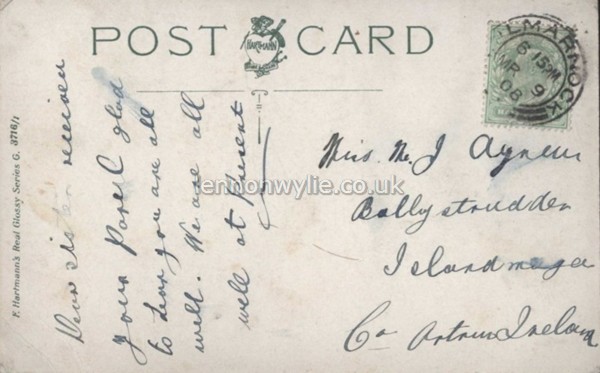 POST CARD
HARTMANN
KILMARNOCK
6 15PM
MR 9
08
Dear sister received
your Parcel glad
to hear you are all
well. We are all
well at Present
Miss. M. J Agnew
Ballystrudden
Islandmagee
Co Antrim Ireland
lennonwylie.co.uk
F. Hartmann's Real Glossy Series G. 3716/1